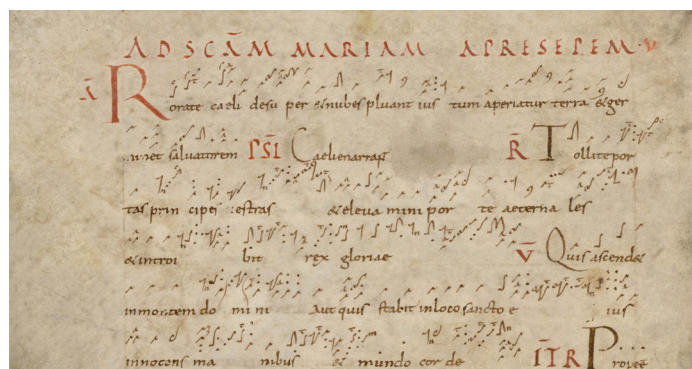 AD SCĀM MARIAM APRESEPEM·
Ā Rorate caeli desu per & nubes pluant ius tum aperiatur terra & ger
minet salvatorem PSĪ Caelienarrant R̄ Tollitepor
tasprin cipes vestras & eleva mini por te aeterna les
& introi bit rex gloriae V̄ Quis ascend&
inmontem do mi ni autquis stabit inloco sancto e ius
innocens ma nibus & mundo cor de ITR P